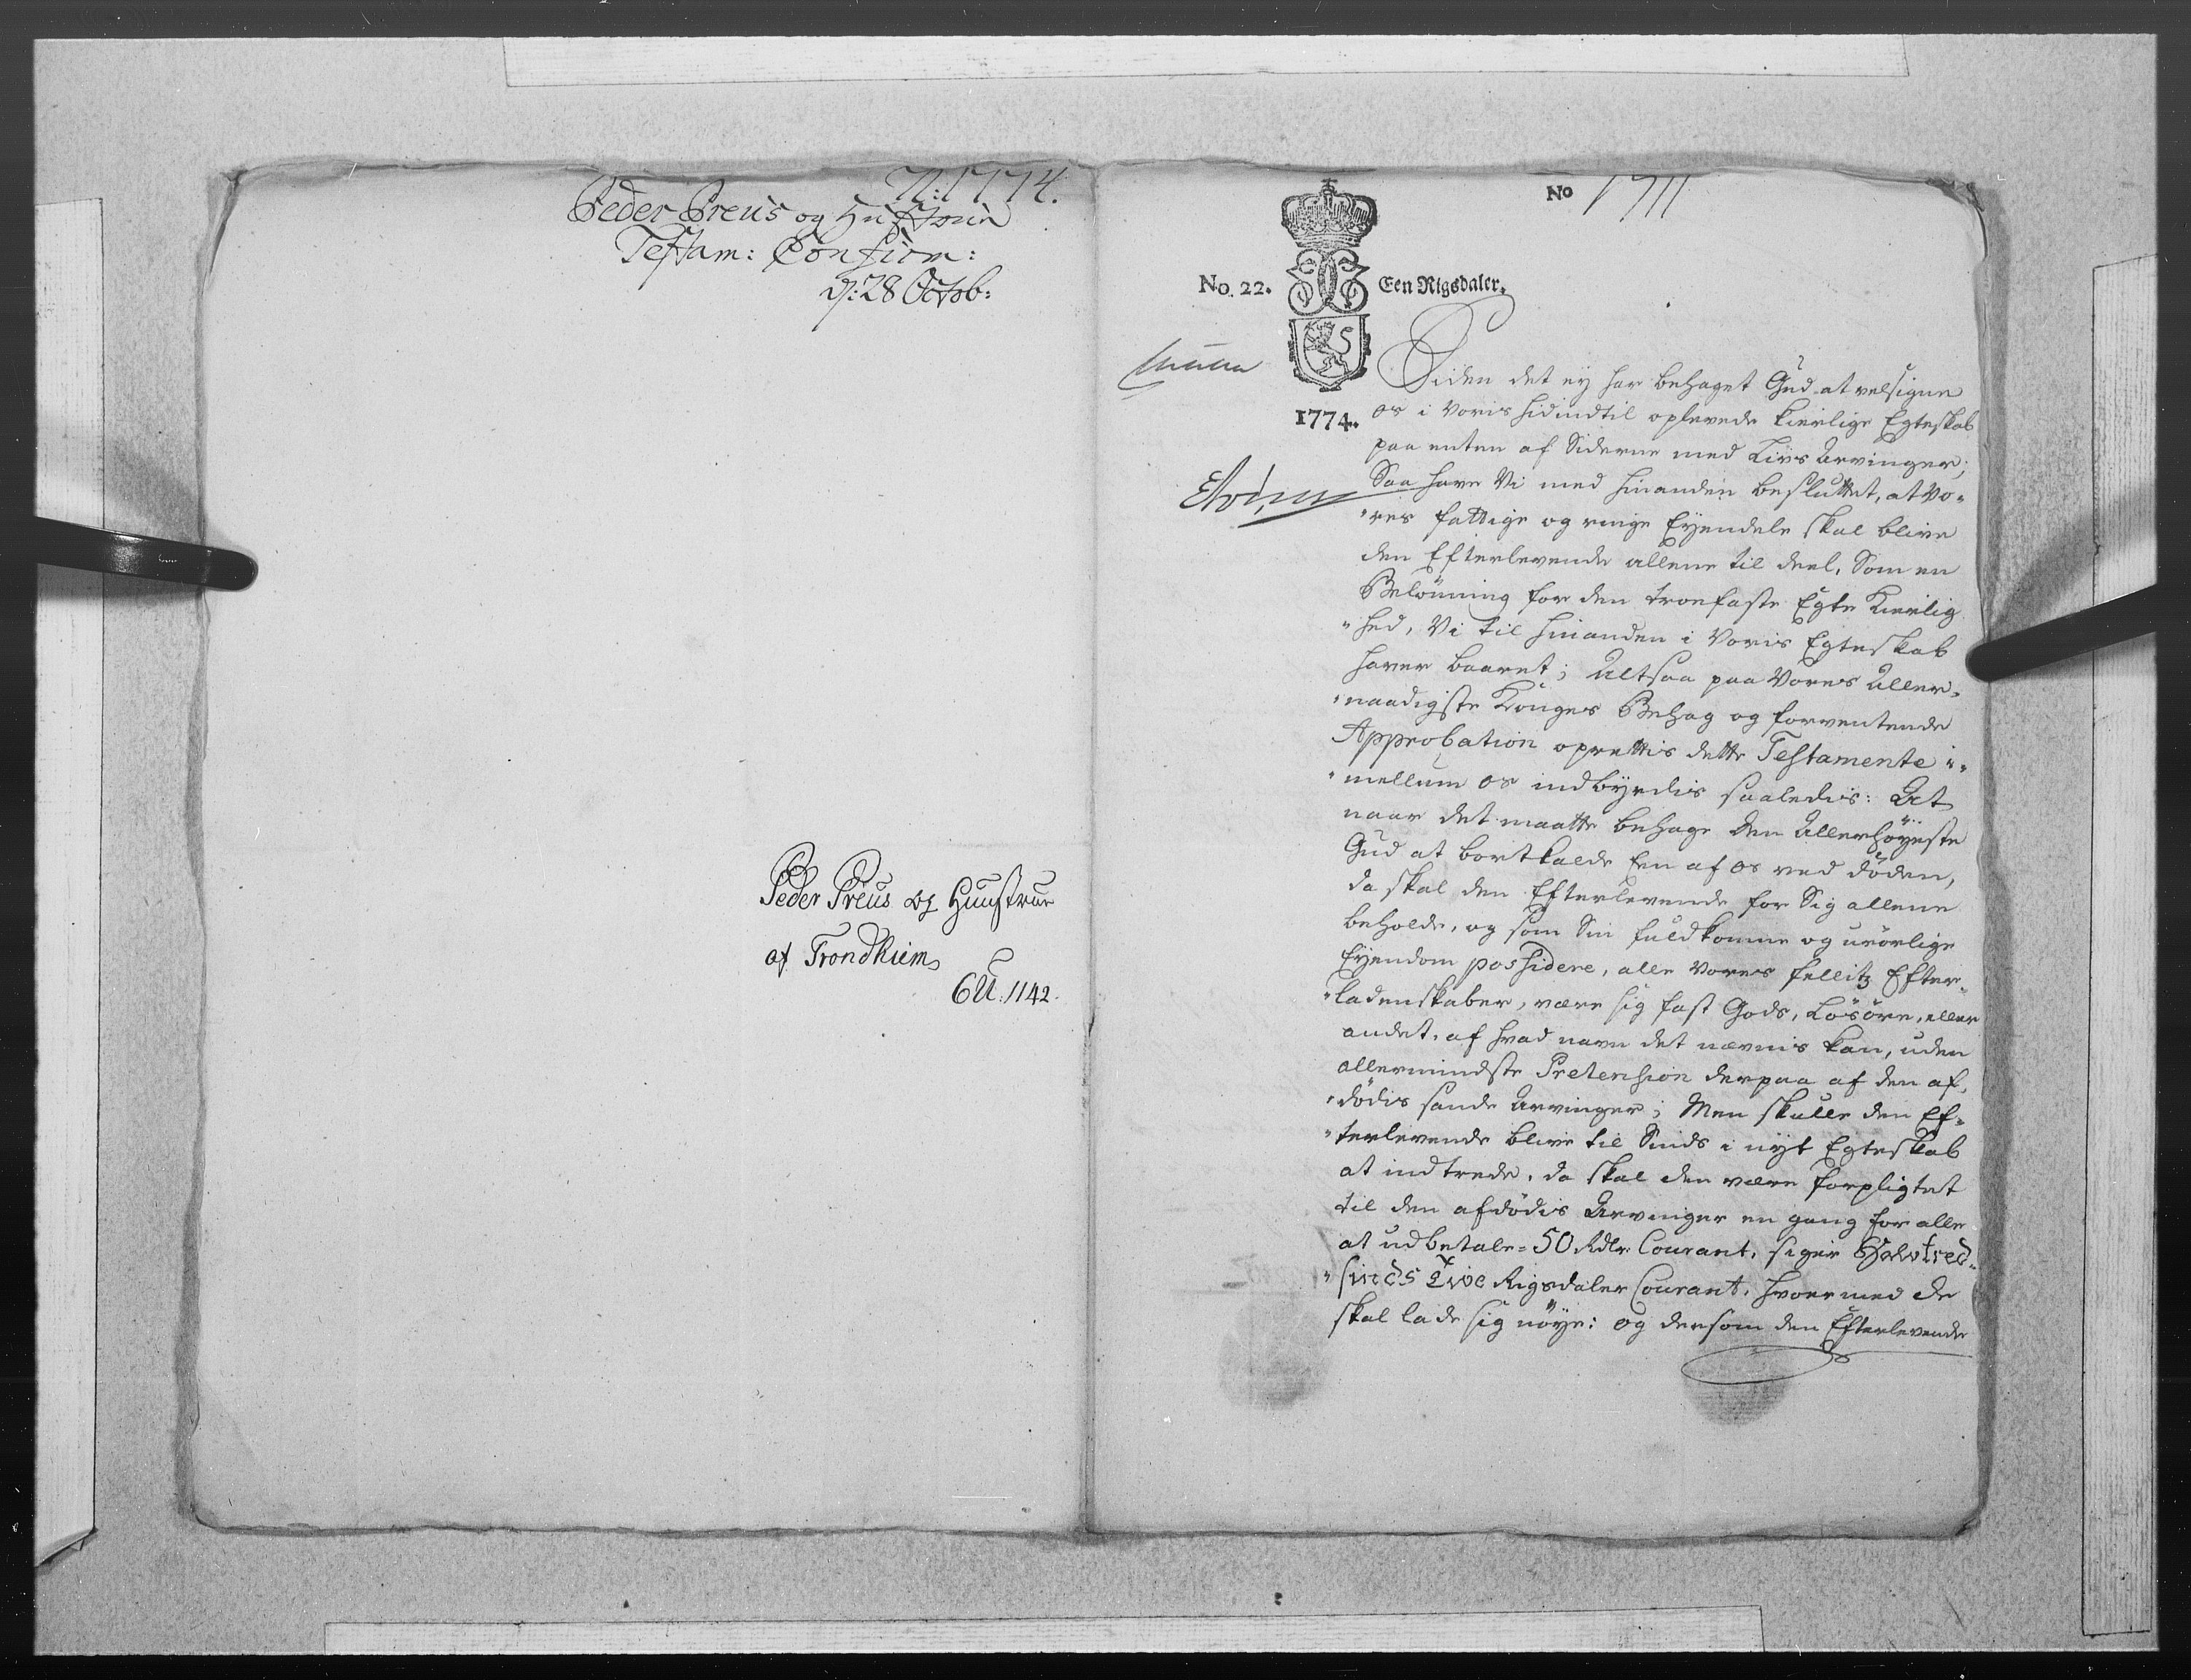 N: 1774.
Peder Preus og Hustrue
Testam: Confirm:
d: 28 Octob:
Peder Preus og Huustrue
af Trondhiem
1142.
No
No. 22. Een Rigsdaler.
1774.
Siden det ey har behaget Gud at velsigne
os i voris hidindtil oplevede kierlige Egteskab
paa enten af Siderne med Livs Arvinger;
Saa have Vi med hinanden besluttet, at Vo-
"res fattige og ringe Eyendele skal blive
den Efterlevende allene til deel, Som en
Belönning for den troefaste Egte Kierlig
"hed, Vi til hinanden i Voris Egteskab
haver baaret; Altsaa paa Vores Aller-
"naadigste Konges Behag og forventende
Approbation oprettis dette Testamente i-
"mellum os indbyrdis saaledis: At
naar det maatte behage den Allerhöyeste
Gud at bortkalde Een af os ved döden,
da skal den Efterlevende for Sig allene
beholde, og som Sin fuldkomne og urörlige
Eyendom possidere, alle Vores fellitz Efter-
"ladenskaber, være sig fast Gods, Lösöre, eller
andet, af hvad navn det nævnis kan, uden
allermindste Pretension derpaa af den af-
"dödis sande Arvinger; Men skulle den Ef-
"terlevende blive til Sinds i nyt Egteskab
at indtrede, da skal den være forpligtet
til den afdödis Arvinger en gang for alle
at udbetale = 50 Rdlr Courant, siger Halvtred-
"sinds Tive Rigsdaler Courant, hvormed de
skal lade sig nöye: og dersom den Efterlevende